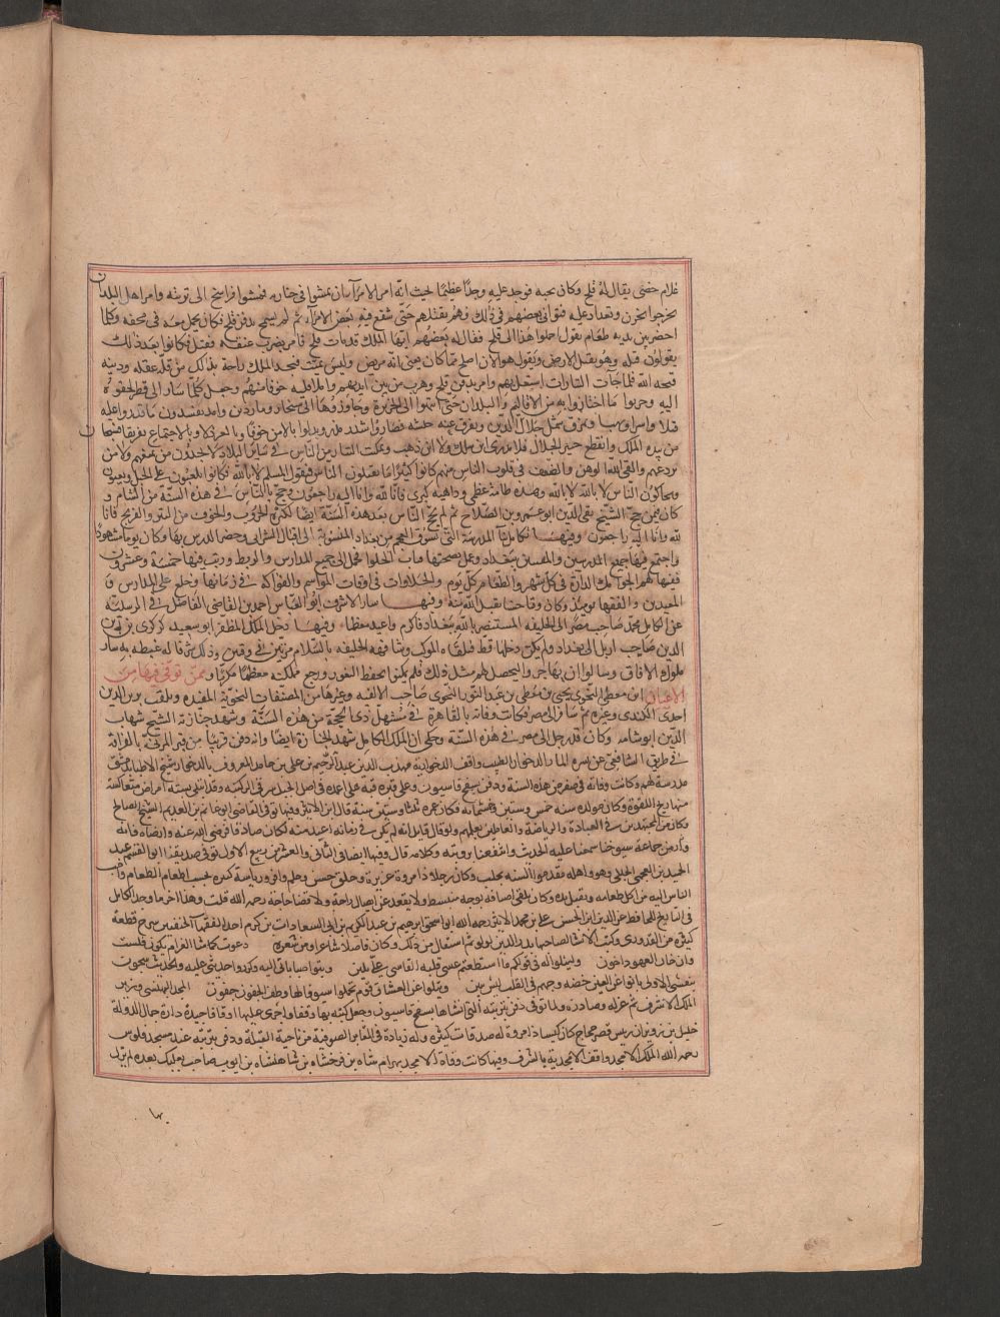 غلام خصي يقال له قلج وكان يحبه فوجد عليه وجدا عظيما بحيث انه امر الامرآء ان يمشوا في جنازته فمشوا فراسخ الى تربته وامر اهل البلدان
يخرجوا بحزن وتعداد عليه فتوانى بعضهم في ذلك فهم بقتلهم حتى شفع فيهم بعض الامرآء ثم لم يسمح بدفن قلج فكان يحمل معه في محفة وكلما
احضر بين يديه طعام يقول احملوا هذا الى قلج فقال له بعضهم ايها الملك قد مات قلج فامر بضرب عنقه فقتل فكانوا بعد ذلك
يقولون قبله وهو يقبل الارض ويقول هو الان اصلح مما كان يعني انه مريض وليس بميت فيجد الملك راحة بذلك من قلة عقله ودينه
قبحه الله فلما جاءت التتارات اشتغل بهم وامر بدفن قلج وهرب من بين ايديهم وامتلأ قلبه خوفا منهم وجعل كلما سار الى قطر لحقوه
اليه وخربوا ما اجتازوا به من الاقاليم والبلدان حتى انتهوا الى الجزيرة وجاوزوها الى سنجار وماردين وامد يفسدون ما قدروا عليه
قتلا واسرا ونهبا وتمزق شمل جلال الدين وتفرق عنه جيشه فصاروا شذر مذر وبدلوا بالامن خوفا وبالعز ذلا وبالاجتماع تفريقا فسبحان
من بيده الملك وانقطع خبر الجلال فلا يدرى اين سلك ولا اين ذهب وتمكنت التتار من الناس في سائر البلاد لا يجدون من يمنعهم ولا من
يردعهم والقى الله الوهن والضعف في قلوب الناس منهم كانوا كثيرا ما يقتلون الناس فيقول المسلم لا بالله فكانوا يلعبون على الخيل ويغنون
ويحاكون الناس لا بالله لا بالله وهذه طامة عظمى وداهية كبرى فانا لله وانا اليه راجعون وحج بالناس في هذه السنة من الشام و
كان ممن حج الشيخ تقي الدين ابو عمرو بن الصلاح ثم لم يحج الناس بعد هذه السنة ايضا لكثرة الحروب والخوف من التتر والفرنج فانا
لله وانا اليه راجعون وفيها تكامل بنا المدرسة التي بسوق العجم من بغداد المنسوبة الى اقبال الشرابي وحضر الدرس بها وكان يوما مشهودا
واجتمع فيها جميع المدرسين والمفتيين ببغداد وعمل بصحنها قباب الحلوا فحمل الى جميع المدارس والربط ورتب فيها خمسة وعشرون
فقيها لهم الجوامك الدارة في كل شهر والطعام في كل يوم والحلاوات في اوقات المواسم والفواكه في زمانها وخلع على المدارس و
المعيدين والفقها يومئذ وكان وقتا حسنا تقبل الله منه وفيها سار الاشرف ابو العباس احمد بن القاضي الفاضل في الرسلية
عن الكامل محمد صاحب مصر الى الخليفة المستنصر بالله ببغداد فاكرم واعيد معظما وفيها دخل الملك المظفر ابو سعيد كوكبرى بن زين
الدين صاحب اربل الى بغداد ولم يكن دخلها قط فتلقاه الموكب وشافهه الخليفة بالسلام مرتين في وقتين وذلك شرفا له غبطه به سائر
ملوك الافاق وسالوا ان يهاجروا ليحصل لهم مثل ذلك فلم يمكنوا لحفظ الثغور ورجع الى ملكته معظما مكرما وممن توفي فيها من
الاعيان ابن معطي النحوي يحيى بن معطي بن عبد النور النحوي صاحب الالفية وغيرها من المصنفات النحوية المفيدة ويلقب بزين الدين
اخذ عن الكندي وغيره ثم سافر الى مصر فكانت وفاته بالقاهرة في مستهل ذي الحجة من هذه السنة وشهد جنازته الشيخ شهاب
الدين ابو شامة وكان قد رحل الى مصر في هذه السنة وحكى ان الملك الكامل شهد الجنازة ايضا وانه دفن قريبا من قبر المزني بالقرافة
في طريق الشافعي عن يسرة المار الدخوار الطبيب واقف الدخوارية مهذب الدين عبد الرحيم بن علي بن حامد المعروف بالدخوار شيخ الاطباء بدمشق
مدرسة لهم وكانت وفاته في صفر من هذه السنة ودفن بسفح قاسيون وعلى قبره قبة على اعمدة في اصل الجبل شرقي الركنية وقد ابتلي بستة امراض متعاكسة
منها ريح اللقوة وكان مولده سنة خمس وستين وخمسمائة وكان عمره ثلثا وستين سنة قال ابن الاثير وفيها توفي القاضي ابو غانم بن العديم الشيخ الصالح
وكان من المجتهدين في العبادة والرياضة والعاملين بعلمهم ولو قال قايل انه لم يكن في زمانه اعبد منه لكان صادقا فرضي الله عنه وارضاه فانه
وآدمن جماعة شيوخنا سمعنا عليه الحديث وانتفعنا برؤيته وكلامه قال وفيها ايضا في الثاني والعشرين ربيع الاول توفي صديقنا ابو القسم عبد
الحميد بن العجمي الحلبي وهو واهله مقدمو السنة بحلب وكان رجلا ذا مروة غزيرة وخلق حسن وحلم وافر ورياسة كثيرة يحب اطعام الطعام واحب
الناس اليه من اكل طعامه ويقبل يده وكان يلقى اضيافه بوجه منبسط ولا يقعد عن ايصال راحة ولا قضا حاجة رحمه الله قلت وهذا اخر ما وجد الكامل
في التاريخ للحافظ عز الدين ابن الحسن علي بن محمد الاثير رحمه الله ابو اسحق ابرهيم بن عبد الكريم بن ابي السعادات بن كرم احد الفقها الحنفيين شرح قطعة
كبيرة من القدوري وكتب الانشا لصاحبها بدر الدين لولو ثم استقال من ذلك وكان فاضلا شاعرا ومن شعره دعوه كما شا الغرام يكون فلست
وان خان العهود اخون ولينوا له في قولكم ما استطعتم عسى قلبه القاسي علي يلين وبثوا صباباتي اليه وكرروا حديثي عليه والحديث شجون
بنفسي الاولى بانوا عن العين حصة وحبهم في القلب ليس يبين وسلوا عن العشاق يوم تحملوا سيوفا لها وطف الجفون جفون المجد البهنسي وزير
الملك الاشرف ثم عزله وصادره ولما توفي دفن بتربته التي انشاها بسفح قاسيون وجعل كتبه بها وقفا واجرى عليها اوقافا جيدة دارة جمال الدولة
خليل بن زويزان ريس قصر حجاج كان كيسا ذا مروة له صدقات كثيرة وله زيادة في مقابر الصوفية من ناحية القبلة ودفن بتربته عند مسجد فلوس
رحمه الله الملك الامجد واقف الامجدية بالشرف وفيها كانت وفاة الامجد بهرام شاه بن فرخشاه بن شاهنشاه بن ايوب صاحب بعلبك بعده لم يزل
بها